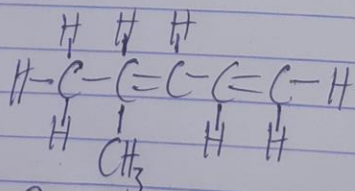 H H H
H-C-C=C-C=C-H
H H H
CH₃